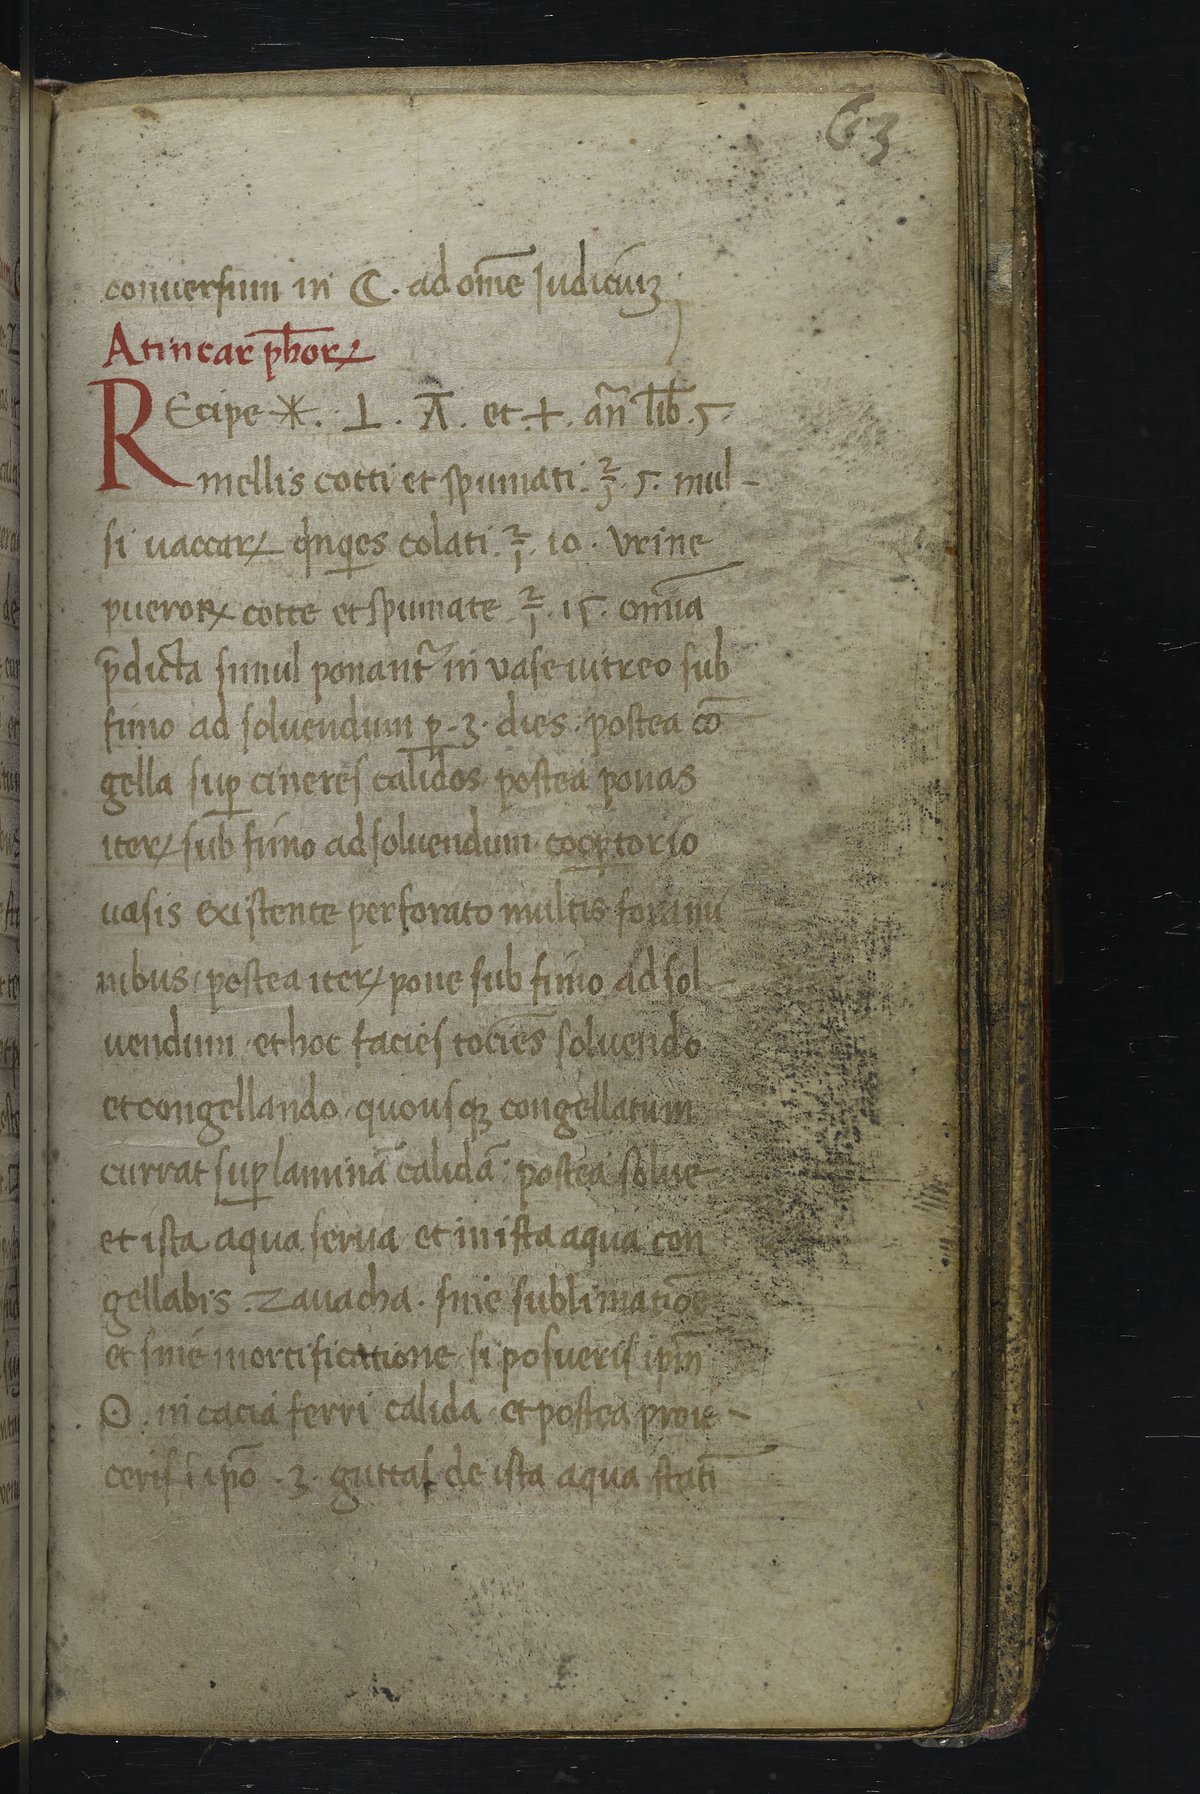 63
conuersum in ☾. ad om̄e Judiciuꝫ
Atincar ph̄orꝝ
REcipe ✳. ⊥. Ā. et + . an̄ lib̄. 5.
mellis cotti et spumati. ℥. 5. mul-
si uaccarꝝ qͥnqꝫes colati. ℥. 10. vrine
puerorꝝ cotte et spumate. ℥. 15. om̄ia
p̄dicta simul ponant᷑ in vase uitreo sub
fimo ad soluendum ꝑ .3. dies. postea cō
gella suꝑ cineres calidos postea ponas
iterꝝ sub fimo ad soluendum cooꝑtorio
uasis existente perforato multis forami
nibus / postea iterꝝ pone sub fimo ad sol-
uendum. et hoc facies tociēs soluendo
et congellando / quousqꝫ congellatum
currat suꝑ laminā calidā. postea solue
et ista aqua serua et in ista aqua con
gellabis. Zauacha. sine sublimatiōe
et sine mortificatione. si posueris ip̄m
☉. in cacia ferri calida. et postea proie-
ceris i ip̄o .3. guttas de ista aqua statī